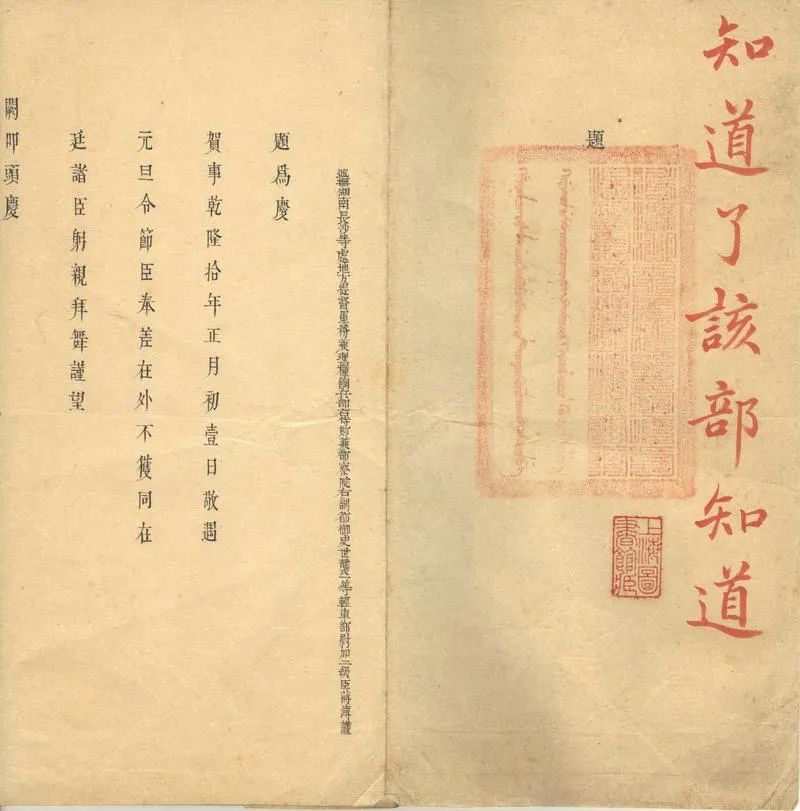 知道了該部知道
題
上海圖
書館藏
巡撫湖南長沙等處地方提督軍務兼理糧餉兵部右侍郎兼都察院右副都御史世襲一等輕車都尉加二級臣蔣溥謹
題爲慶
賀事乾隆拾年正月初壹日敬遇
元旦令節臣奉差在外不獲同在
廷諸臣躬親拜舞謹望
闕叩頭慶